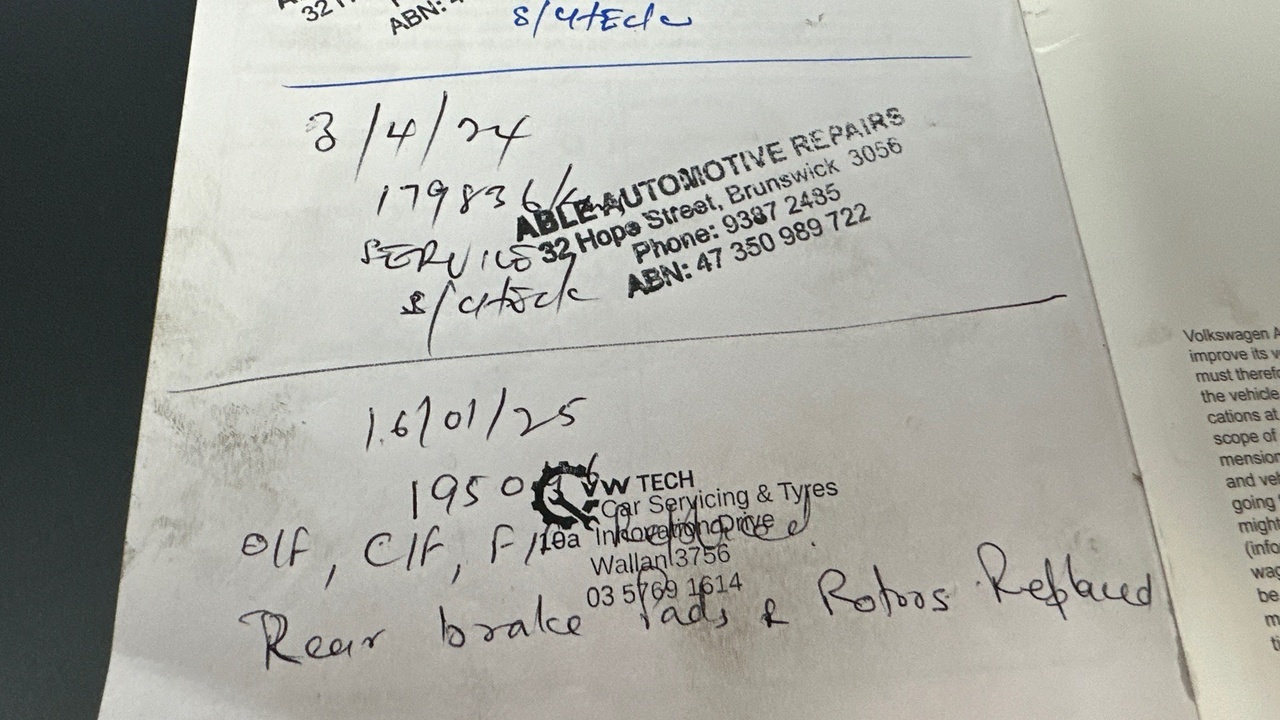 32
ABN:
S/CHECK
3/4/24
179836
ABLE AUTOMOTIVE REPAIRS
32 Hope Street, Brunswick 3056
Phone: 9387 2435
ABN: 47 350 989 722
SERVICE
S/CHECK
16/01/25
VW TECH
Car Servicing & Tyres
10a Innovation Drive
Wallan 3756
03 5769 1614
O/F, C/F, F/F
Rear brake Pads & Rotors Replaced
Volkswagen A
improve its v
must theref
the vehicle
cations at
scope of
mension
and veh
going
might
(info
wag
be
m
ti